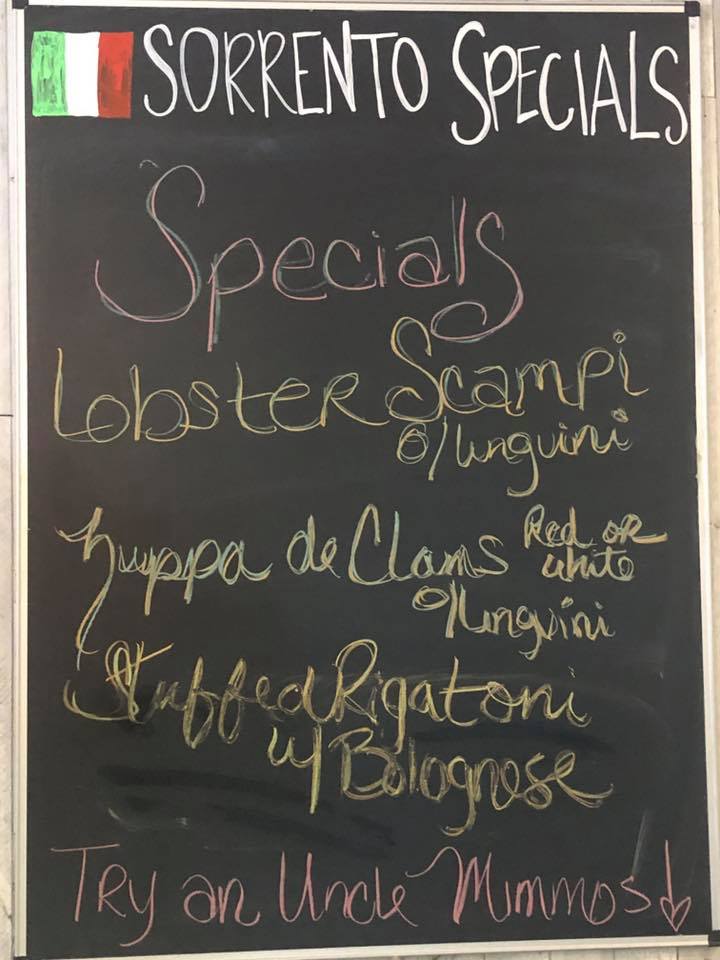 SORRENTO SPECIALS
Specials
Lobster Scampi
o/linguini
Zuppa de Clams Red or
white
o/linguini
Stuffed Rigatoni
w/ Bolognese
Try an Uncle Mimmos